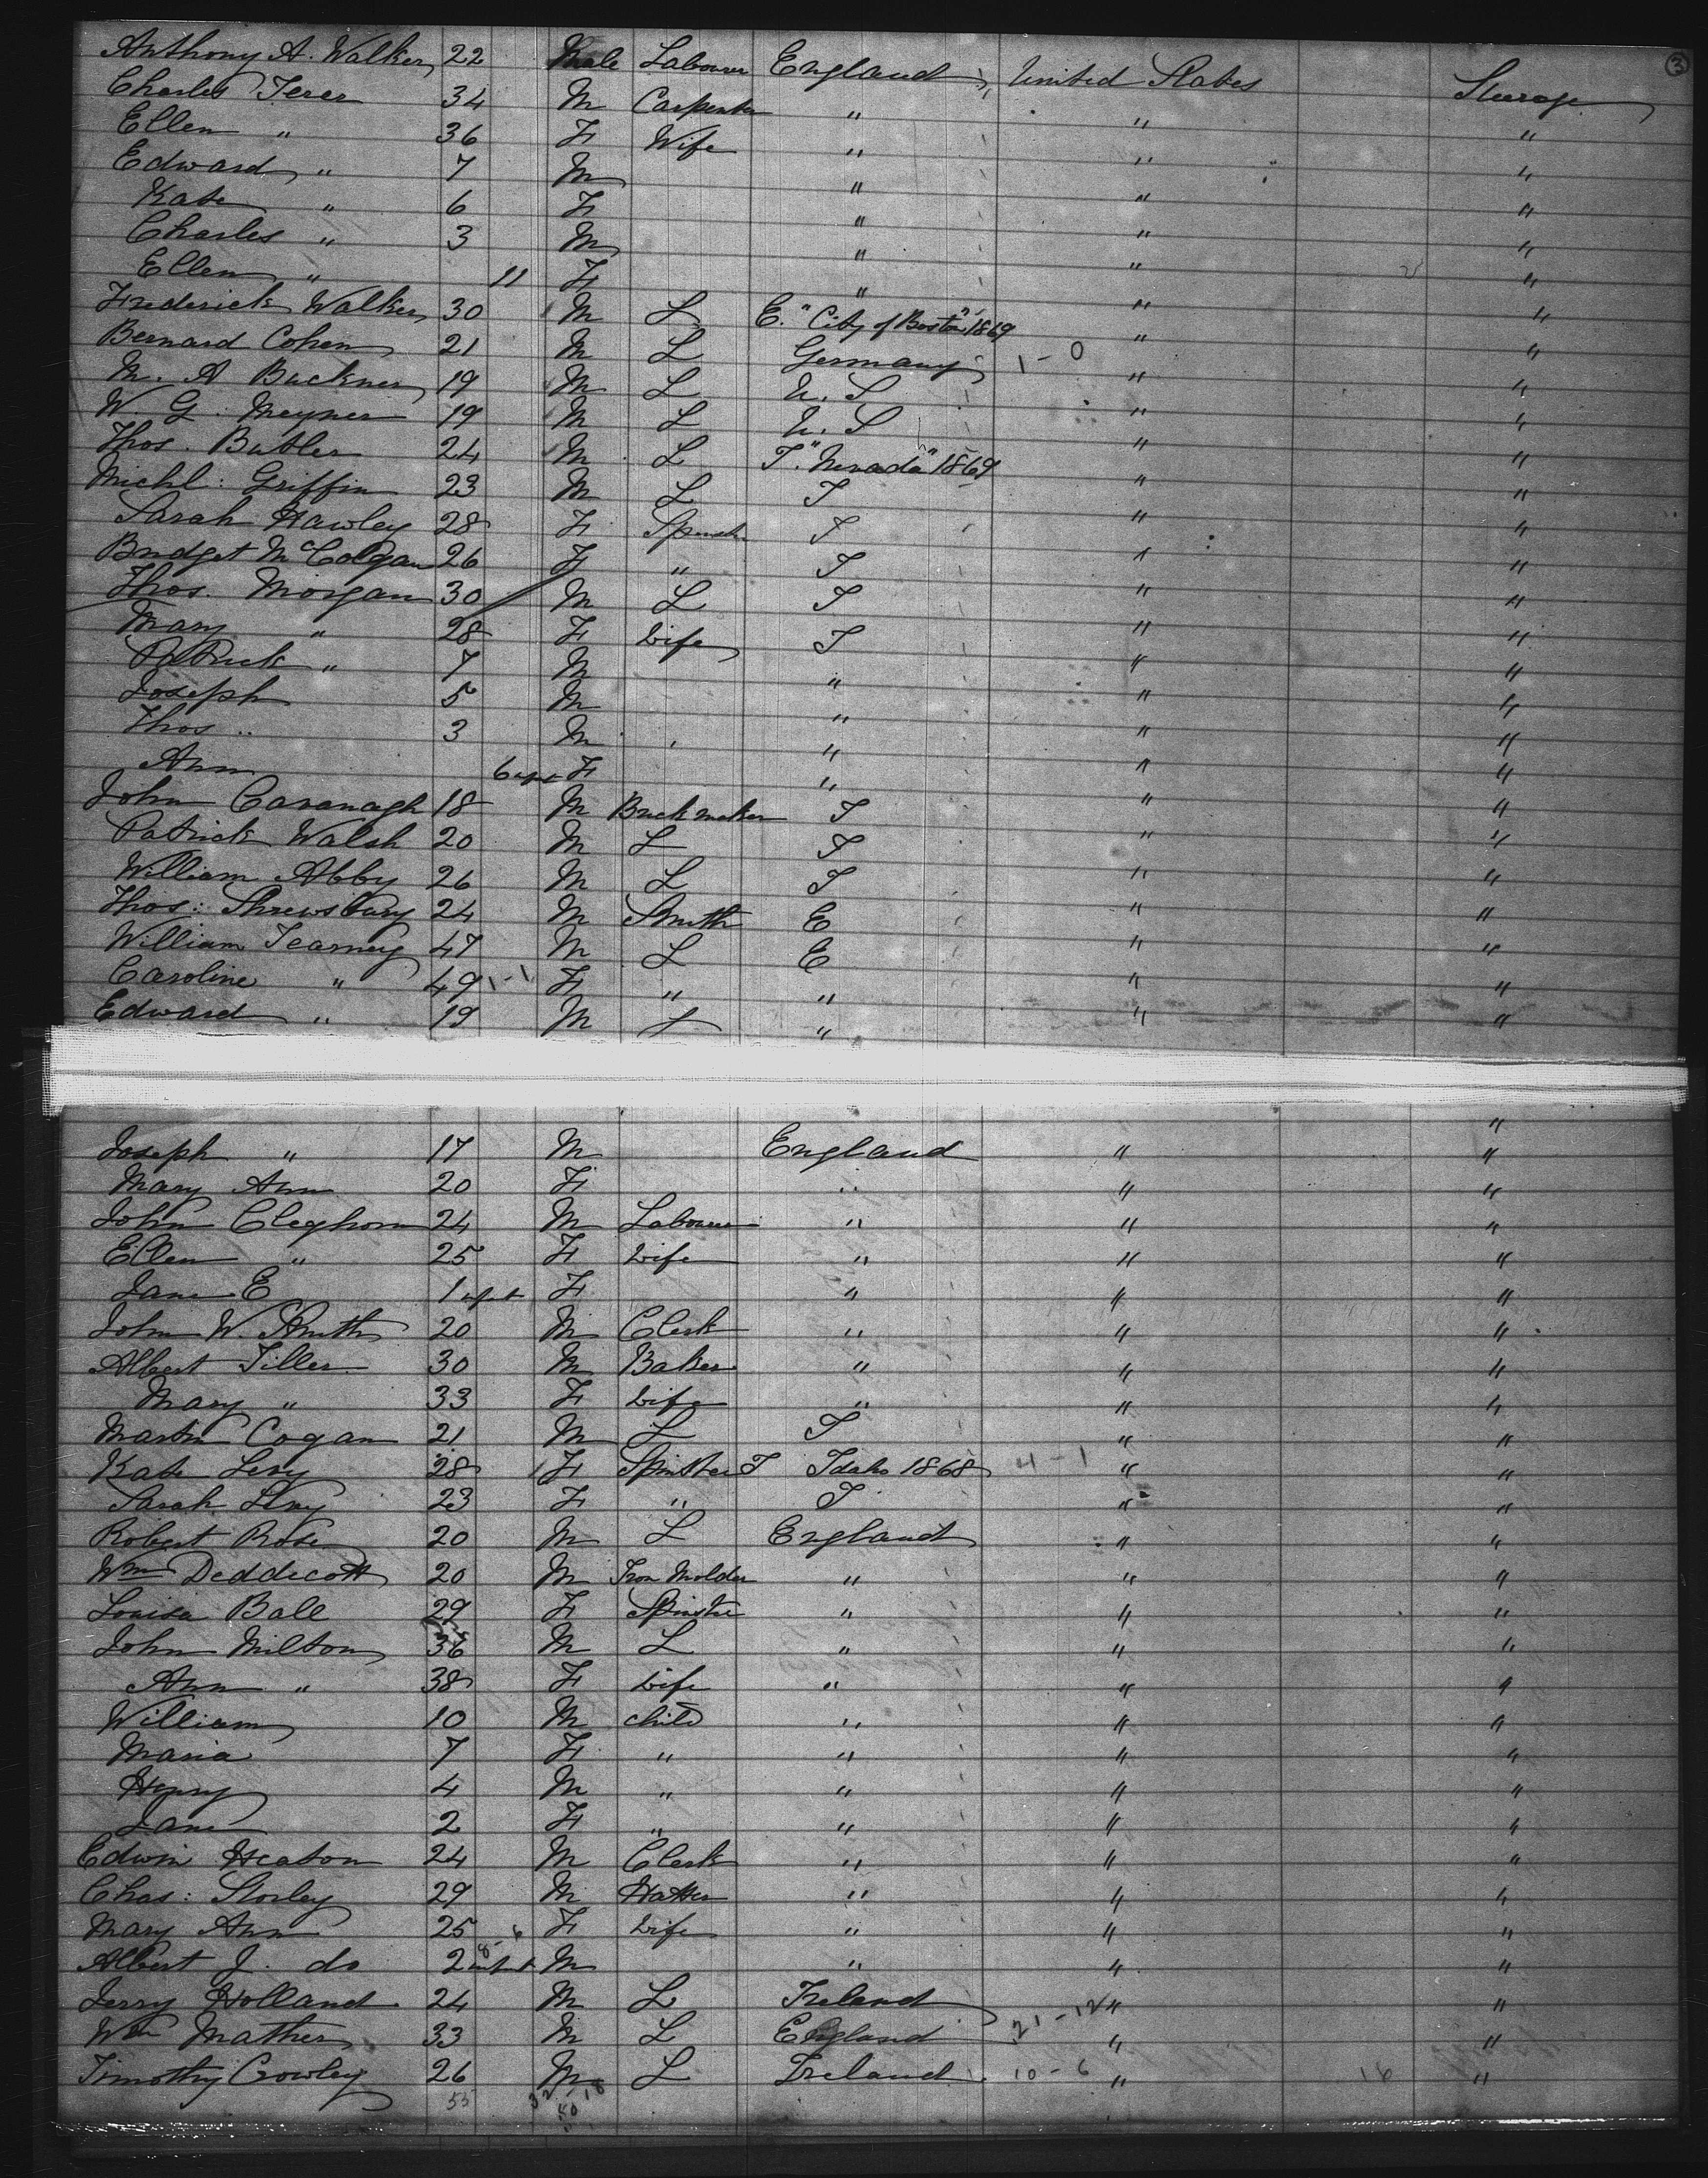 3
Anthony A. Walker 22 Male Labourer England United States Steerage
Charles 34 M Carpenter " " "
Ellen " 36 F Wife " " "
Edward " 7 M " " "
Kate " 6 F " " "
Charles " 3 M " " "
Ellen " 11 F " " "
Frederick Walker 30 M L E. "City of Boston" 1869 " "
Bernard Cohen 21 M L Germany 1-0 " "
M. A Buckner 19 M L U. S " "
W. G. Meyner 19 M L U. S " "
Thos. Butler 24 M L I. "Nevada" 1869 " "
Michl: Griffin 23 M L I " "
Sarah Hawley 28 F Spinster I " "
Bridget McColgan 26 F " I " "
Thos. Morgan 30 M L I " "
Mary " 28 F Wife I " "
Patrick " 7 M " " "
Joseph 5 M " " "
Thos " 3 M " " "
Ann 6 inft F " " "
John Cavanagh 18 M Brickmaker I " "
Patrick Walsh 20 M L I " "
William Abby 26 M L I " "
Thos: Shrewsbury 24 M Smith E " "
William Tearney 47 M L E " "
Caroline " 49 1-1 F " " " "
Edward " 19 M L " " "
"
Joseph " 17 M England " "
Mary Ann 20 F " " "
John Cleghorn 24 M Labourer " " "
Ellen " 25 F Wife " " "
Jane E 1 infut F " " "
John W. Smith 20 M Clerk " " "
Albert Tiller 30 M Baker " " "
Mary " 33 F Wife " " "
Martin Cogan 21 M L I " "
Kate Levy 28 F Spinster I Idaho 1868 4-1 " "
Sarah Levy 23 F " I " "
Robert Rose 20 M L England " "
Wm Deddecott 20 M Iron Molder " " "
Louisa Ball 29 F Spinster " " "
John Milton 36 M L " " "
Ann " 38 F Wife " " "
William 10 M child " " "
Maria 7 F " " " "
Henry 4 M " " " "
Jane 2 F " " " "
Edwin Heaton 24 M Clerk " " "
Chas: Storley 29 M Hatter " " "
Mary Ann 25 F Wife " " "
Albert J. do 2 infut 8-6 M " " "
Jerry Holland 24 M L Ireland " "
Wm Mather 33 M L England 21-12 " "
Timothy Crowley 26 M L Ireland 10-6 " 16 "
55 32